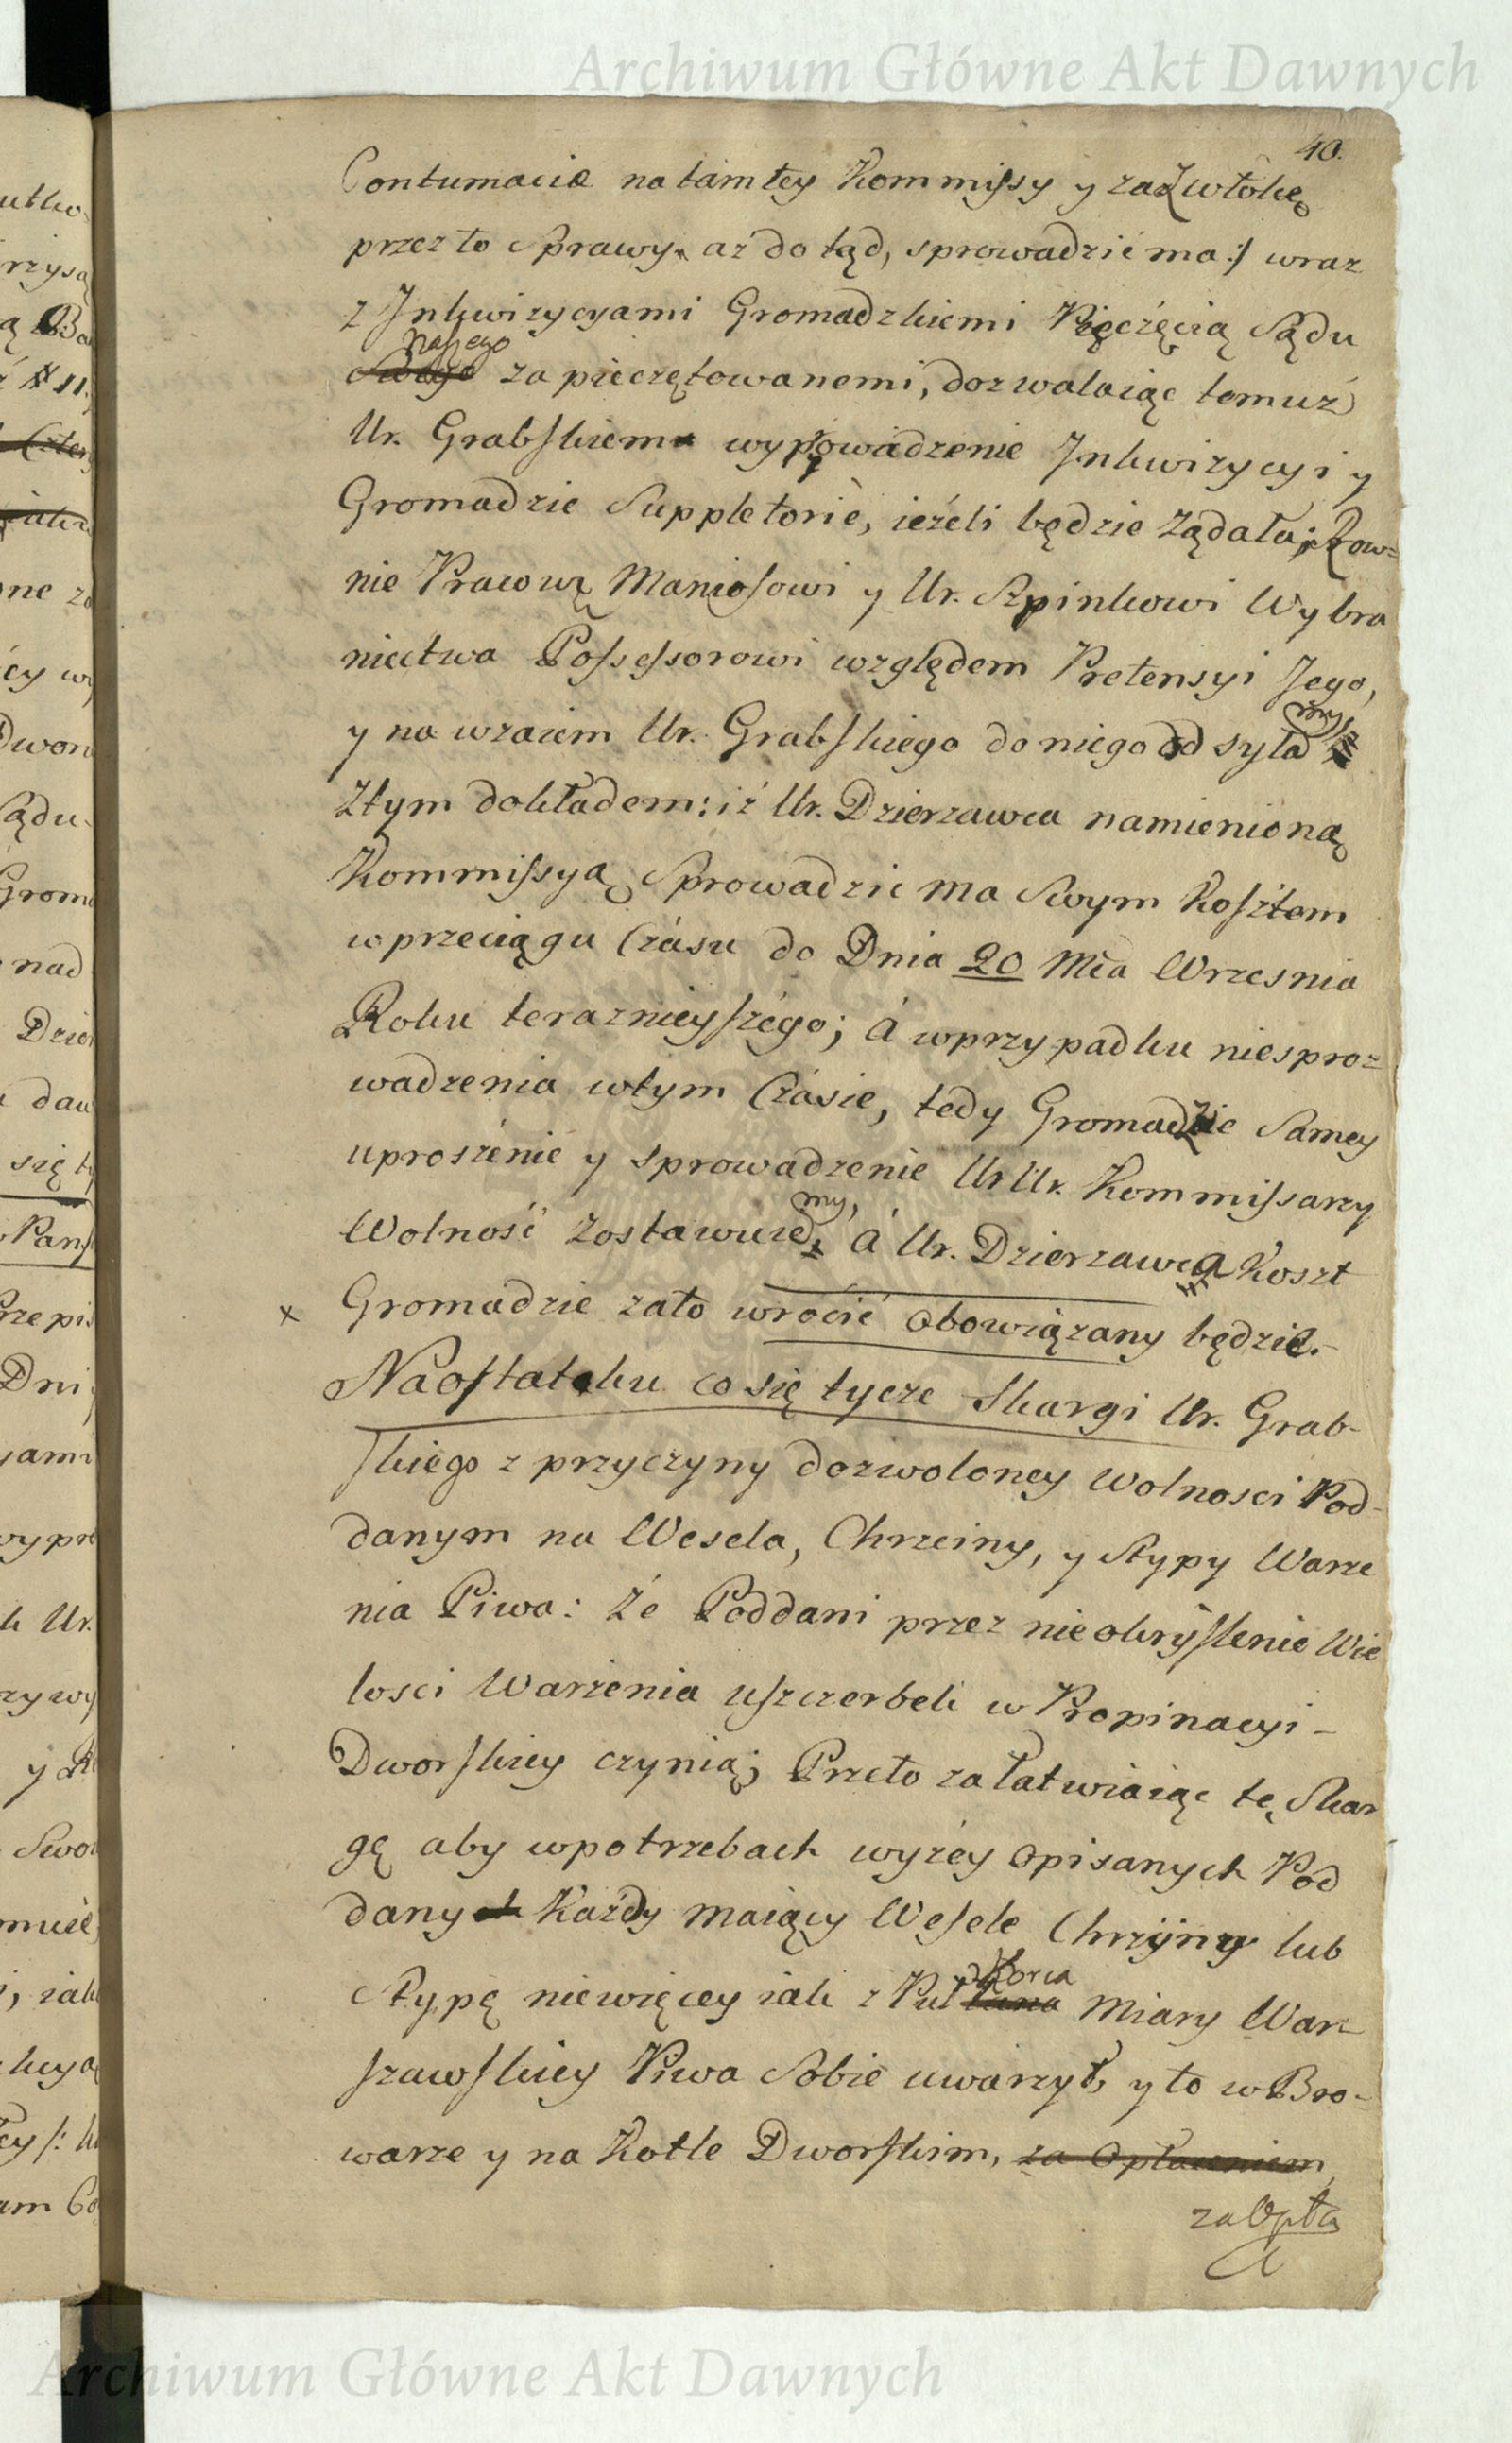 Archiwum Główne Akt Dawnych
40.
Contumacia na tamtey Kommissy y za zwłokę
przez to Sprawy aż do tąd, sprowadzić ma:/ wraz
z Inkwizycyami Gromadzkiemi Pięczęcią Sądu
naszego
Swego zapieczętowanemi, dozwalaiąc temuż
Ur. Grabskiemu wyprowadzenie Inkwizycyi y
Gromadzie Suppletoriè, ieżeli będzie żądała; Row=
nie Prawują Maniosowi y Ur. Szpinkowi Wybra
niectwa Possessorowi względem Pretensyi Jego,
y na wzaiem Ur. Grabskiego do niego odsyła
my,
z tym dokładem: iż Ur. Dzierzawca namienioną
Kommissyą Sprowadzić ma Swym Kosztem
w przeciągu Czasu do Dnia 20 Mca Wrzesnia
Roku teraznieyszego; á w przypadku niespro=
wadzenia w tym Czásie, tedy Gromadzie Samey
uproszenie y sprowadzenie Ur Ur. Kommissarzy
my,
Wolność zostawuie á Ur. Dzierzawca Koszt
x Gromadzie zato wrócić obowiązany będzie.-
Naostatku co się tycze Skargi Ur. Grab-
skiego z przyczyny dozwoloney Wolnosci Pod-
danym na Wesela, Chrzciny, y Stypy Warze
nia Piwa: że Poddani przez nieokryslenie Wie
losci Warzenia uszczerbek w Propinacyi -
Dworskiey czynią; Przeto załatwiaiąc tę Skar
gę aby w potrzebach wyżey opisanych Pod
danych Każdy maiący Wesele Chrzciny lub
Korca
Stypę niewięcey iak z Puł Miary War
szawskiey Piwa Sobie uwarzył, y to w Bro-
warze y na Kotle Dworskim, za Opłaceniem
za Opła
Archiwum Główne Akt Dawnych